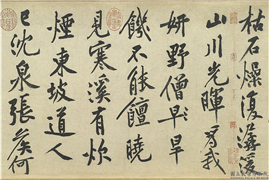 枯石燥復潺湲
山川光暉為我
妍野僧早旱
饑不能饘曉
見寒溪有炊
煙東坡道人
已沈泉張侯何